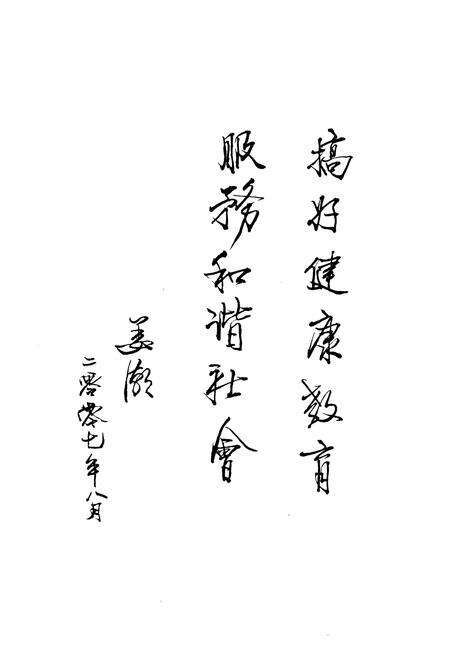 搞好健康教育
服務和谐社會
姜潮
二零零七年八月